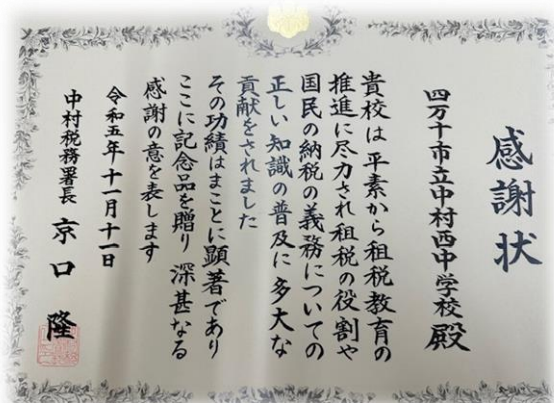 感謝状
四万十市立中村西中学校殿
貴校は平素から租税教育の
推進に尽力され租税の役割や
国民の納税の義務についての
正しい知識の普及に多大な
貢献をされました
その功績はまことに顕著であり
ここに記念品を贈り深甚なる
感謝の意を表します
令和五年十一月十一日
中村税務署長 京口 隆